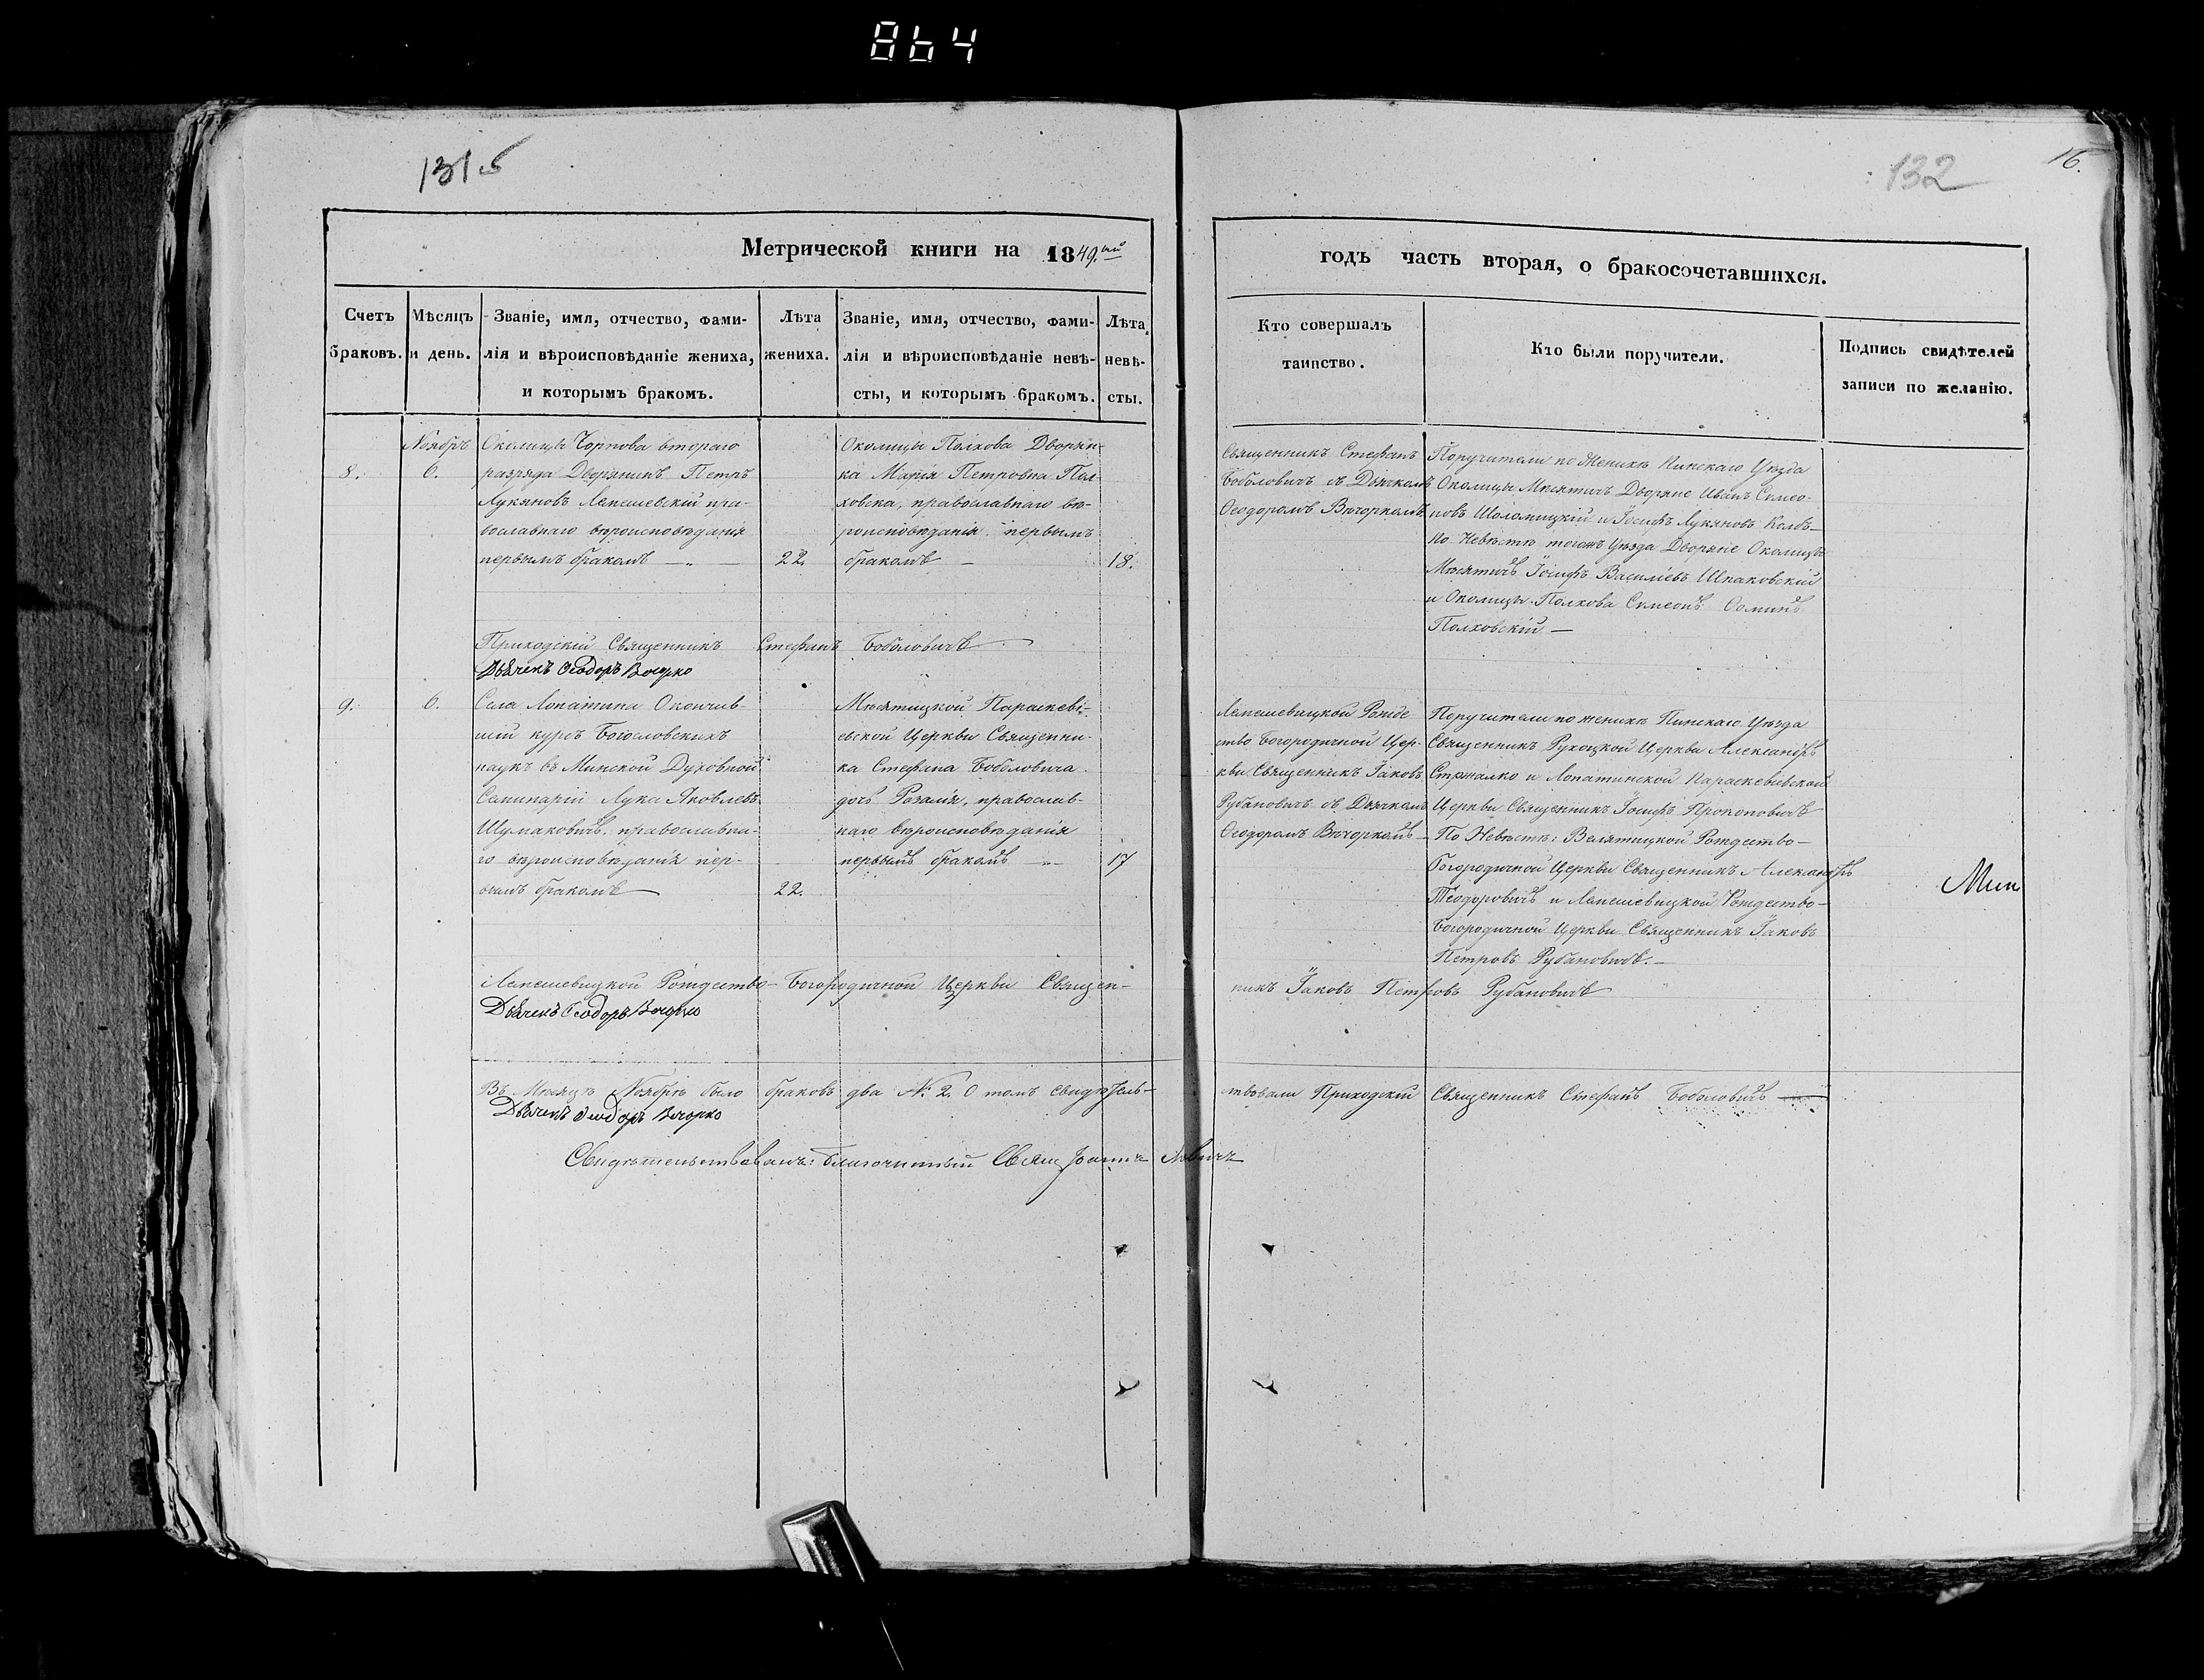 864
131 б
132
16.
Метрической книги на 1849.ый
годъ часть вторая, о бракосочетавшихся.
Счетъ браковъ.
Мѣсяцъ и день.
Званіе, имя, отчество, фами-
лія и вѣроисповѣданіе жениха,
и которымъ бракомъ.
Лѣта
жениха.
Званіе, имя, отчество, фами-
лія и вѣроисповѣданіе невѣ-
сты, и которымъ бракомъ.
Лѣта
невѣ-
сты.
Кто совершалъ
таинство.
Кто были поручители.
Подпись свидѣтелей
записи по желанію.
8.
Ноябрь
6.
Околицы втораго
разряда Дворянинъ Петръ
Лукяновъ Лемешевскій пра-
вославнаго вѣроисповѣданія
первымъ бракомъ — „ —
22.
Околицы Полхова Дворян-
ка Марія Петровна Пол-
ховска, православнаго вѣ-
роисповѣданія первымъ
бракомъ —
18.
Священникъ Стефанъ
Боболовичъ съ Дьячкомъ
Ѳеодоромъ Вѣчоркомъ
Поручители по Женихѣ Пинскаго Уѣзда
Околицы Мѣсятичъ Дворяне Иванъ Симео-
новъ Шоломицкій и Іосифъ Лукяновъ Колбъ —
По Невѣстѣ тогожъ Уѣзда Дворяне Околицъ
Мѣсятичъ Іосифъ Василіевъ Шпаковскій
и Околицы Полхова Симеонъ
Полховскій —
Приходскій Священникъ Стефанъ Боболовичъ
Дьячекъ Ѳеодоръ Вечорко
9.
6.
Села Лопатина Окончив-
шій курсъ Богословскихъ
наукъ въ Минской Духовной
Семинаріи Лука Яковлевъ
Шумаковичъ, православна-
го вѣроисповѣданія пер-
вымъ бракомъ —
22.
Мѣсятицкой Параскеві-
евской Церкви Священни-
ка Стефана Боболовича
дочь Розалія, православ-
наго вѣроисповѣданія
первымъ бракомъ — „ —
17
Лемешевицкой Рожде
ство Богородичной Цер-
кви Священникъ Іаковъ
Рубановичъ съ Дьячкомъ
Ѳеодоромъ Вѣчоркомъ —
Поручители по женихѣ Пинскаго Уѣзда
Священникъ Церкви Александръ
Стржалко и Лопатинской Параскевіевской
Церкви Священникъ Іосифъ Прокоповичъ
По Невѣстѣ: Велятицкой Рождество —
Богородичной Церкви Священникъ Александръ
Теодоровичъ и Лемешевицкой Рождество —
Богородичной Церкви Священникъ Іаковъ
Петровъ Рубановичъ. —
Мин
Лемешевицкой Рождество- Богородичной Церкви Священ-
никъ Іаковъ Петровъ Рубановичъ
Дьячекъ Ѳеодоръ Вечорко
Въ Мѣсяцѣ Ноябрѣ было браковъ два № 2. О томъ свидѣтель-
ствовали Приходскій Священникъ Стефанъ Боболовичъ —
Дьячекъ Ѳеодоръ Вечорко
Свидѣтельствовалъ: Благочинный Свящ Іоаннъ